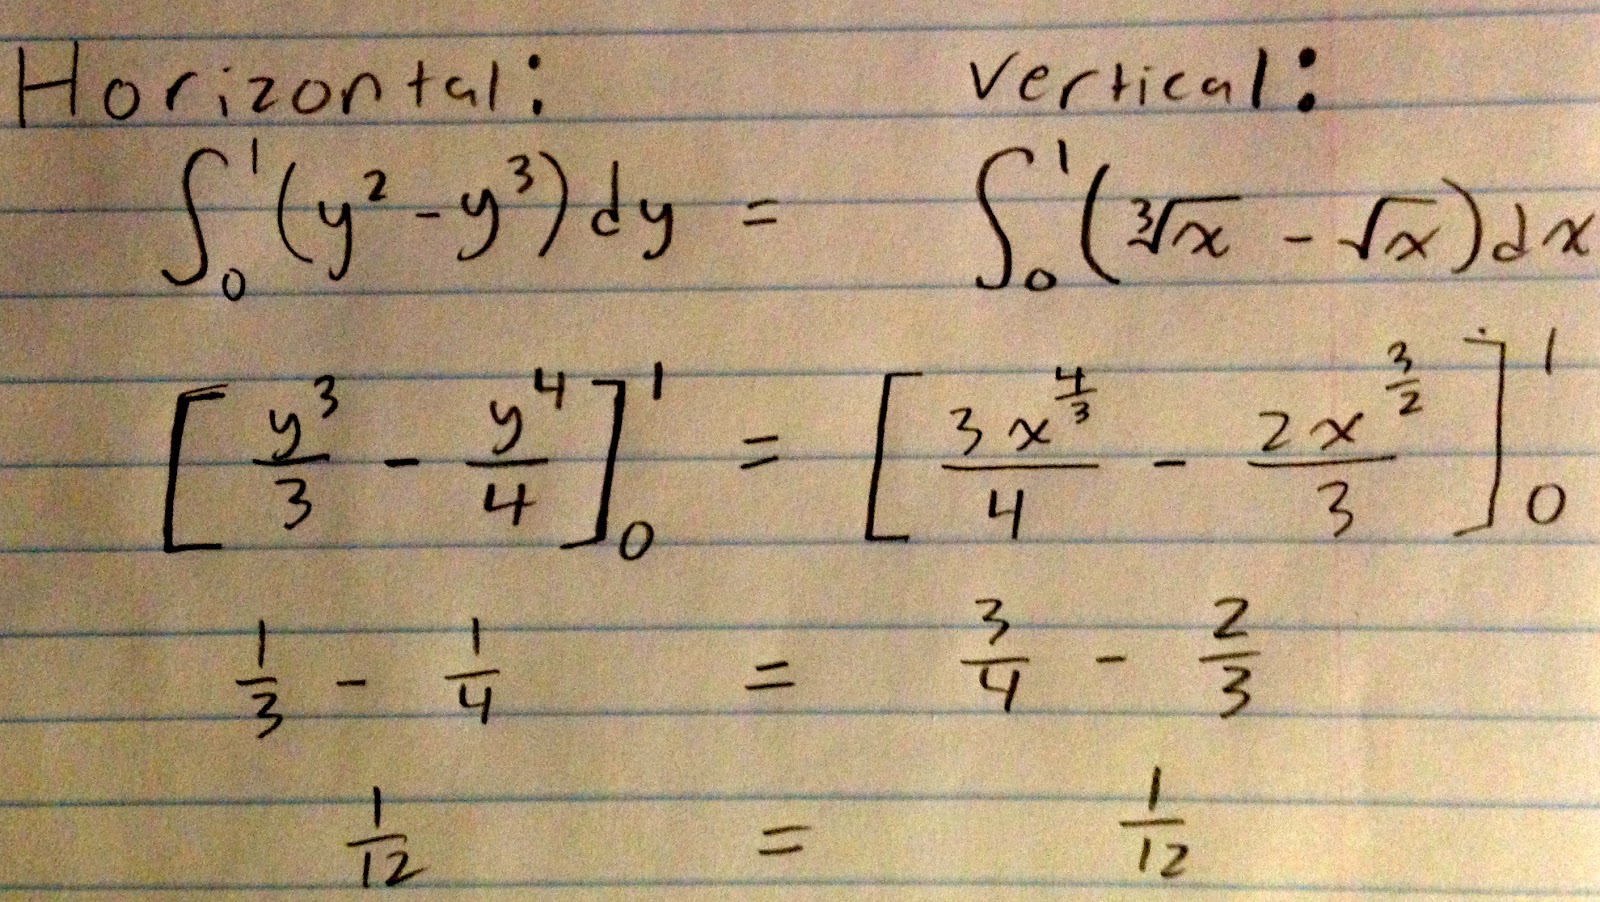 Horizontal: Vertical:
∫₀¹(y² - y³)dy = ∫₀¹(∛x - √x)dx
[y³/3 - y⁴/4]₀¹ = [3x^(4/3)/4 - 2x^(3/2)/3]₀¹
1/3 - 1/4 = 3/4 - 2/3
1/12 = 1/12